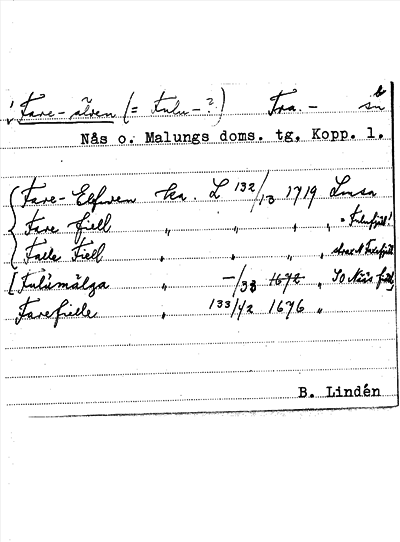 ! Fare-älven (= Fulu-?) Tra. - sn
Nås o. Malungs doms. tg, Kopp. l.
Fare-Elfwen ka. L 132/13 1719 Lmsa
Fare fiell " " " " = Fulufjäll!
Falle Fiell " " "
Fulumälga " -/33 1672 "
Farefielle " 133/42 1676 "
B. Lindén